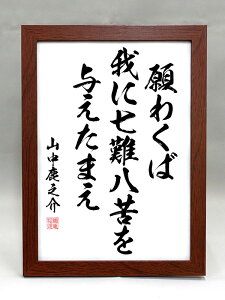 願わくば
我に七難八苦を
与えたまえ
山中鹿之介